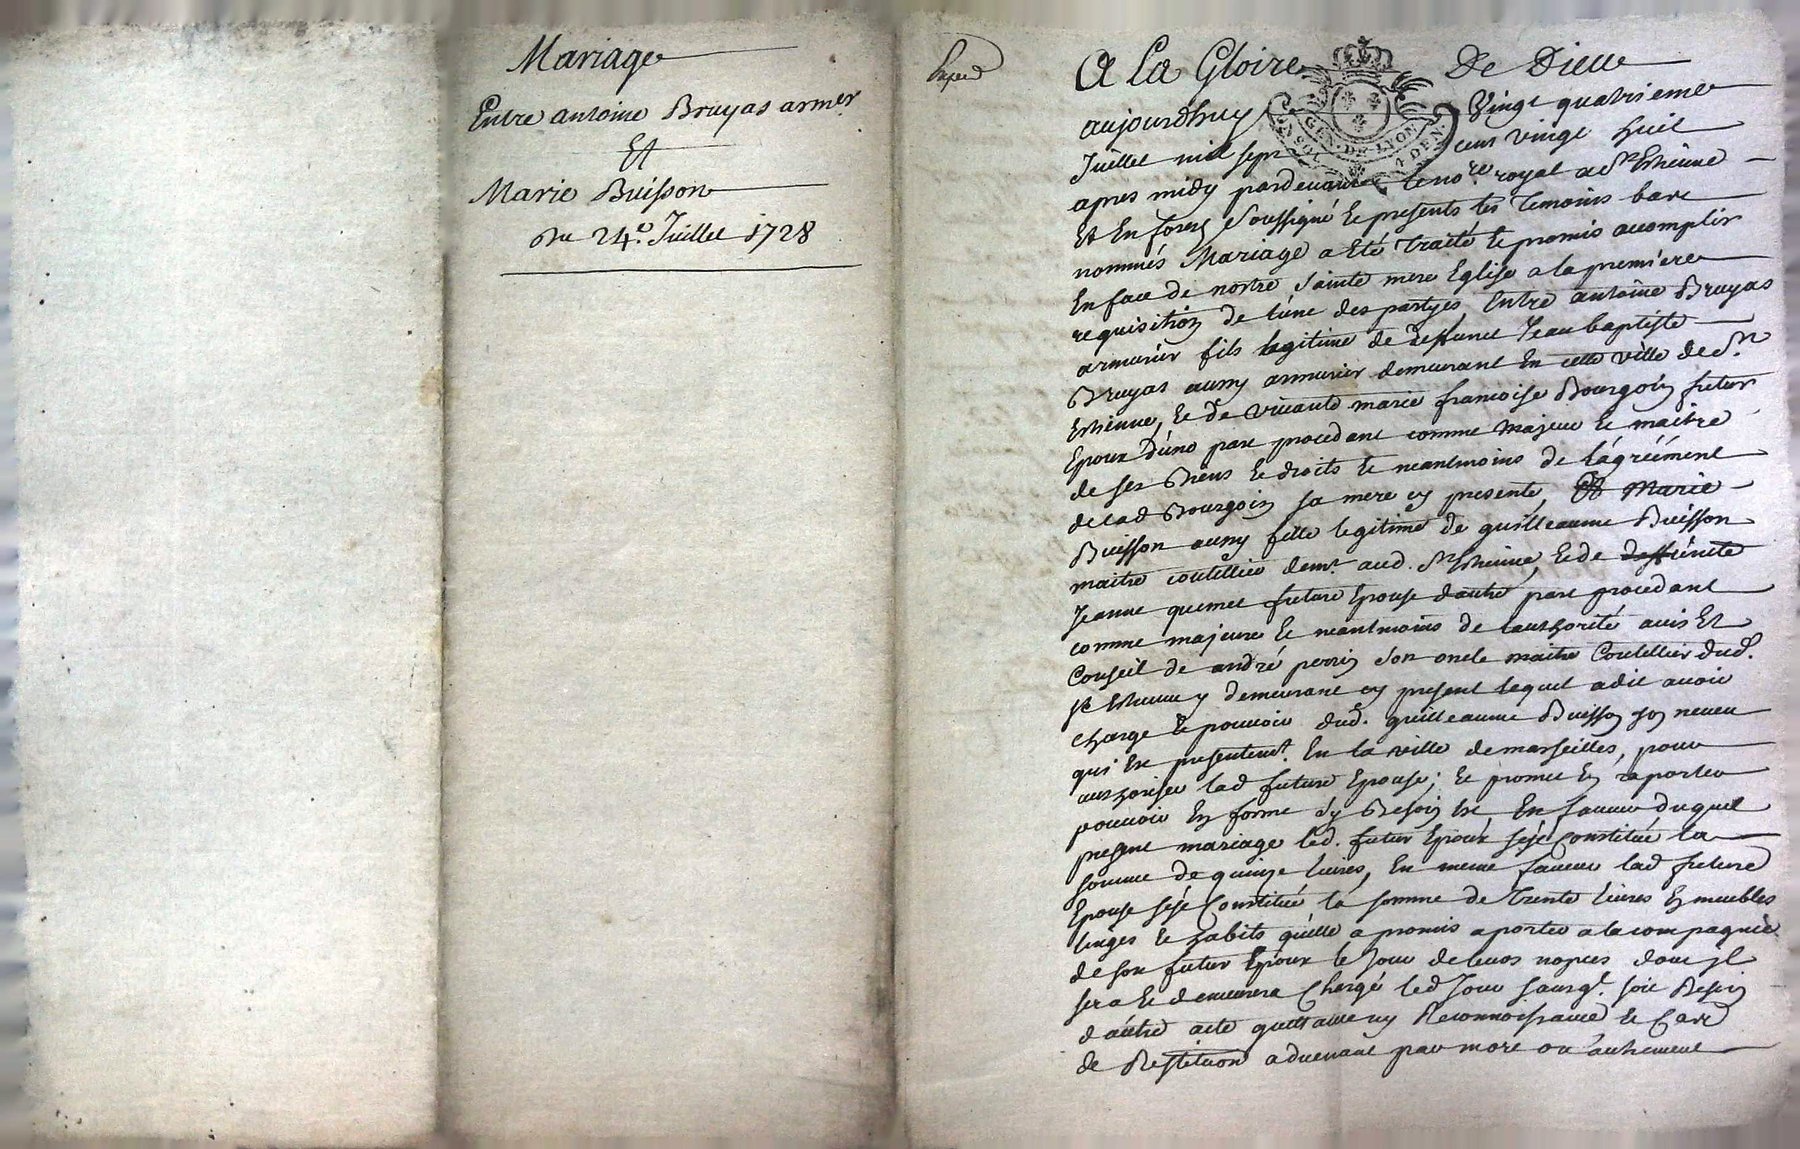 Mariage
Entre antoine Bruyas armer
Et
Marie Buisson
Du 24e. Juillet 1728
A La Gloire De Dieu
GEN. DE LYON
4 DEN
aujourdhuy Vingt quatrieme
Juillet mil sept cent vingt huit
apres midy pardevant le nore. royal a St Estienne
Et En forez soussigné Et presents les Temoins bas
nommés Mariage a Eté Traité Et promis acomplir
En face de nostre Sainte mere Eglise a la premiere
requisition de l'une des partyes, Entre antoine Bruyas
armurier fils legitime de deffunct Jean baptiste
Bruyas aussy armurier demeurant En cette ville de St
Estienne, Et de vivante marie francoise Bourgoin futur
Epoux d'une part procedant comme Majeur Et maitre
de ses Biens Et droits Et neantmoins de l'agréement
de lad Bourgoin sa mere cy presente, Et Marie
Buisson aussy fille legitime de guilleaume Buisson
maitre coutellier demt. aud. St Estienne, Et de deffuncte
Jeanne quemet future Epouse d'autre part procedant
comme majeure Et neantmoins de l'authorité avis Et
Conseil de andré perrin son oncle maitre Coutellier dud.
St Estienne y demeurant cy present lequel a dit avoir
charge Et pouvoir dud. guilleaume Buisson son neveu
qui Est presentemt. En la ville de marseilles, pour
authoriser lad future Epouse; Et promet En raporter
pouvoir En forme s'y Besoin Est En faveur duquel
present mariage led. futur Epoux s'est Constitué la
somme de quinze livres, En meme faveur lad future
Epouse s'est Constitué la somme de Trente livres En meubles
linges Et habits qu'elle a promis aporter a la compagnie
de son futur Epoux le Jour de leurs nopces dont Jl
sera Et demeurera Chargé led Jour sans qt. soit Besoin
d'autre acte quittance ny Reconnoissance Et Cas
de Restitution advenant par mort ou autrement